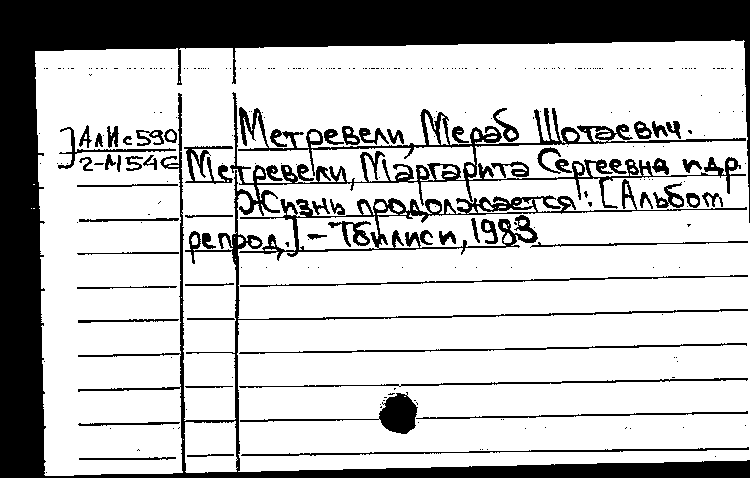 АлИс590
2-М546
Метревели, Мераб Шотаевич.
Метревели, Маргарита Сергеевна и др.
Жизнь продолжается: [Альбом
репрод.]. - Тбилиси, 1983